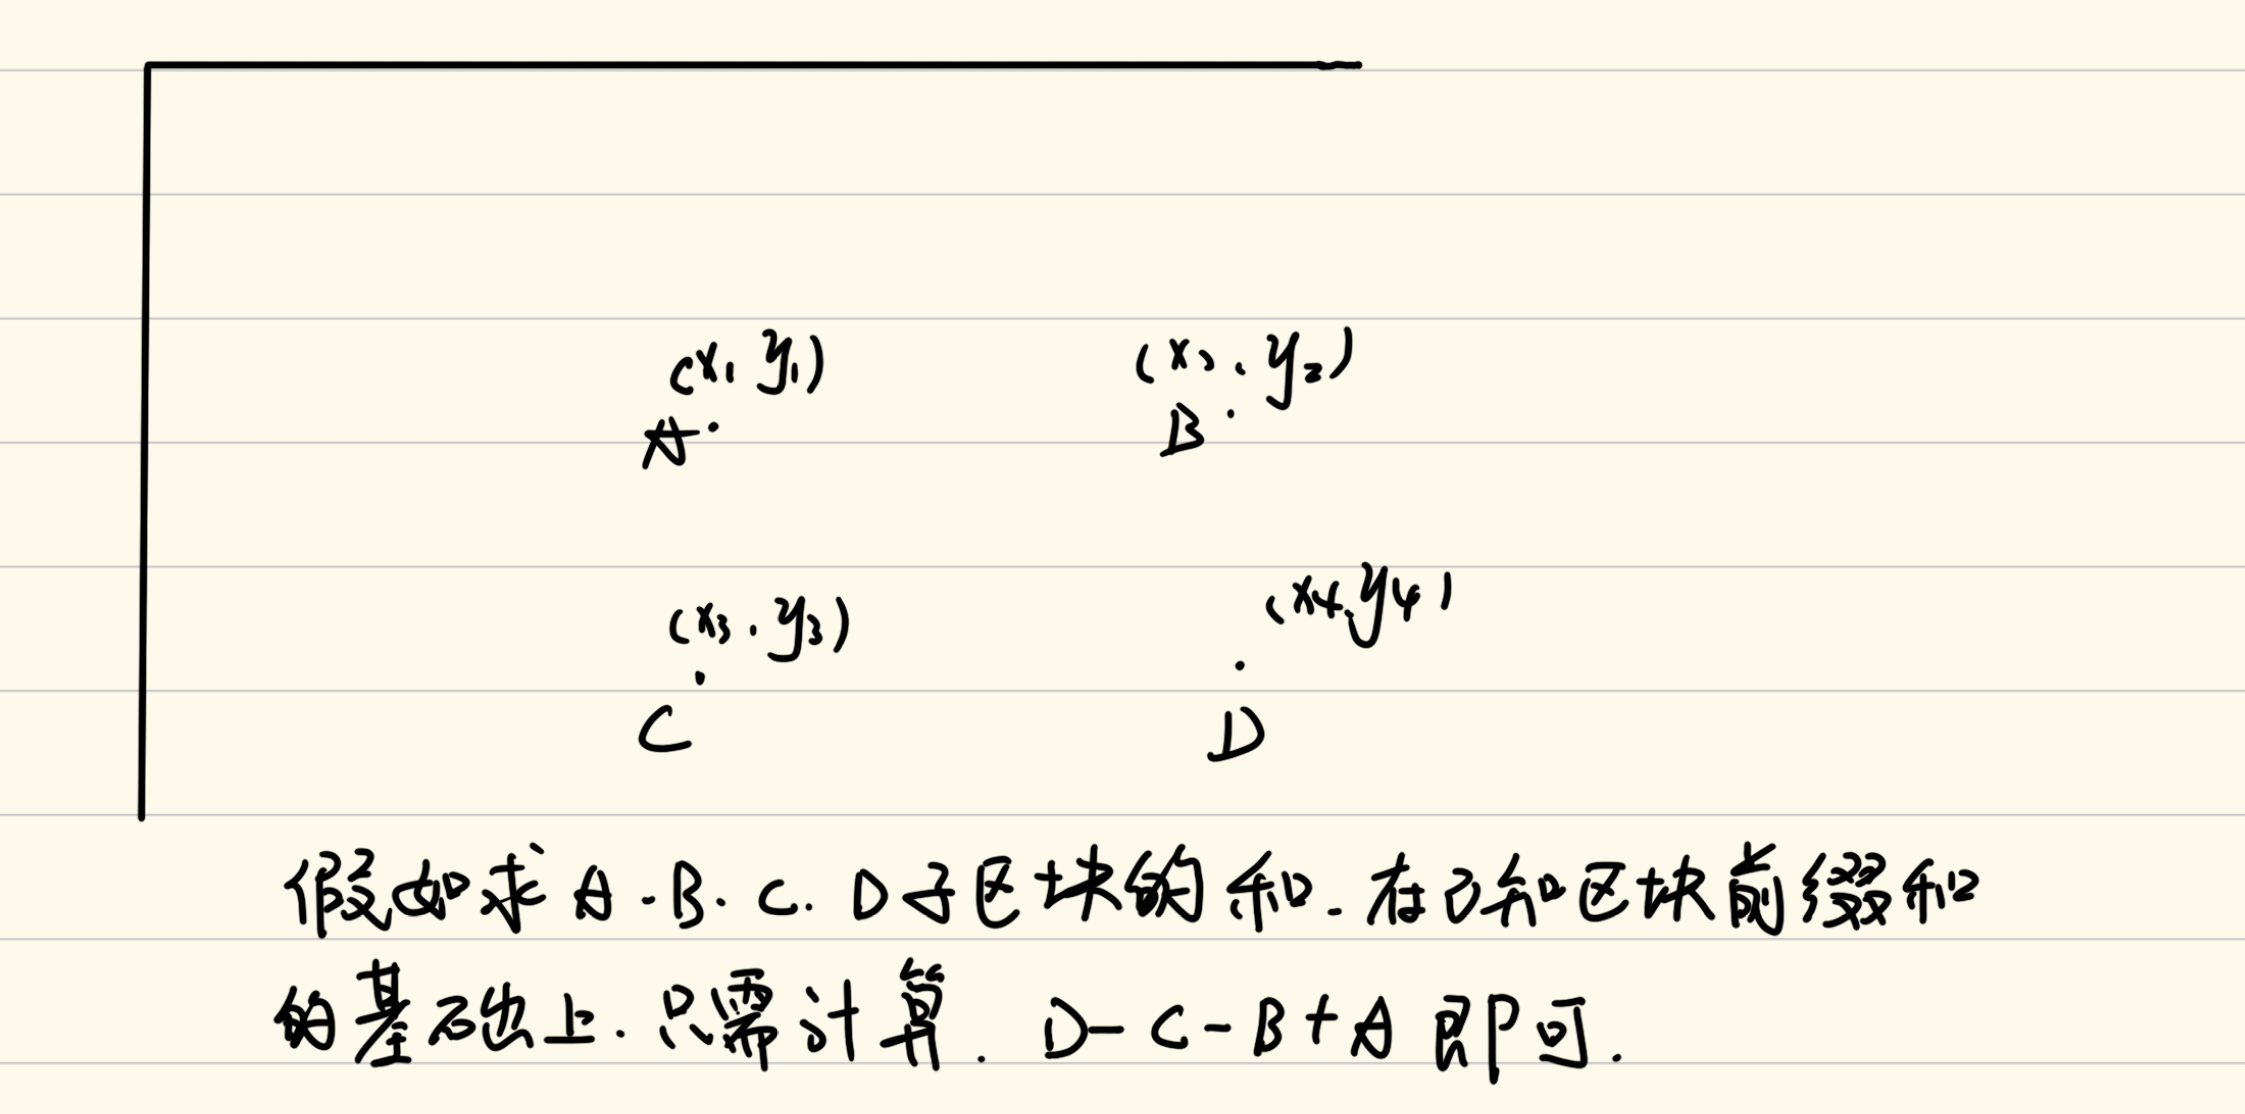 (x1 y1) (x2, y2)
A B
(x3, y3) (x4, y4)
C D
假如求 A.B.C.D子区块的和.在已知区块前缀和
的基础上.只需计算. D-C-B+A 即可.